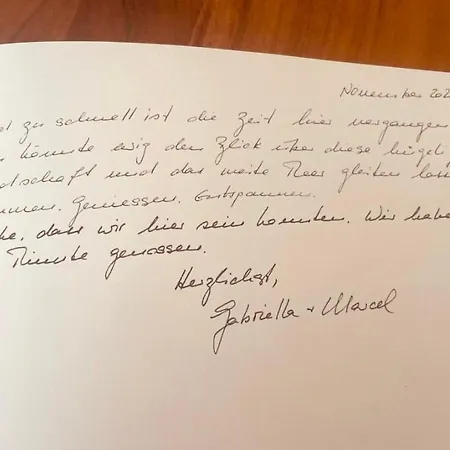 November 202
zu schnell ist die Zeit hier vergangen
könnte ewig den Blick über diese hügel
dschaft und das weite Meer gleiten las
men. Geniessen. Entspannen.
ke, dass wir hier sein konnten. Wir habe
Minute genossen.
Herzlichst,
Gabriella + Marcel